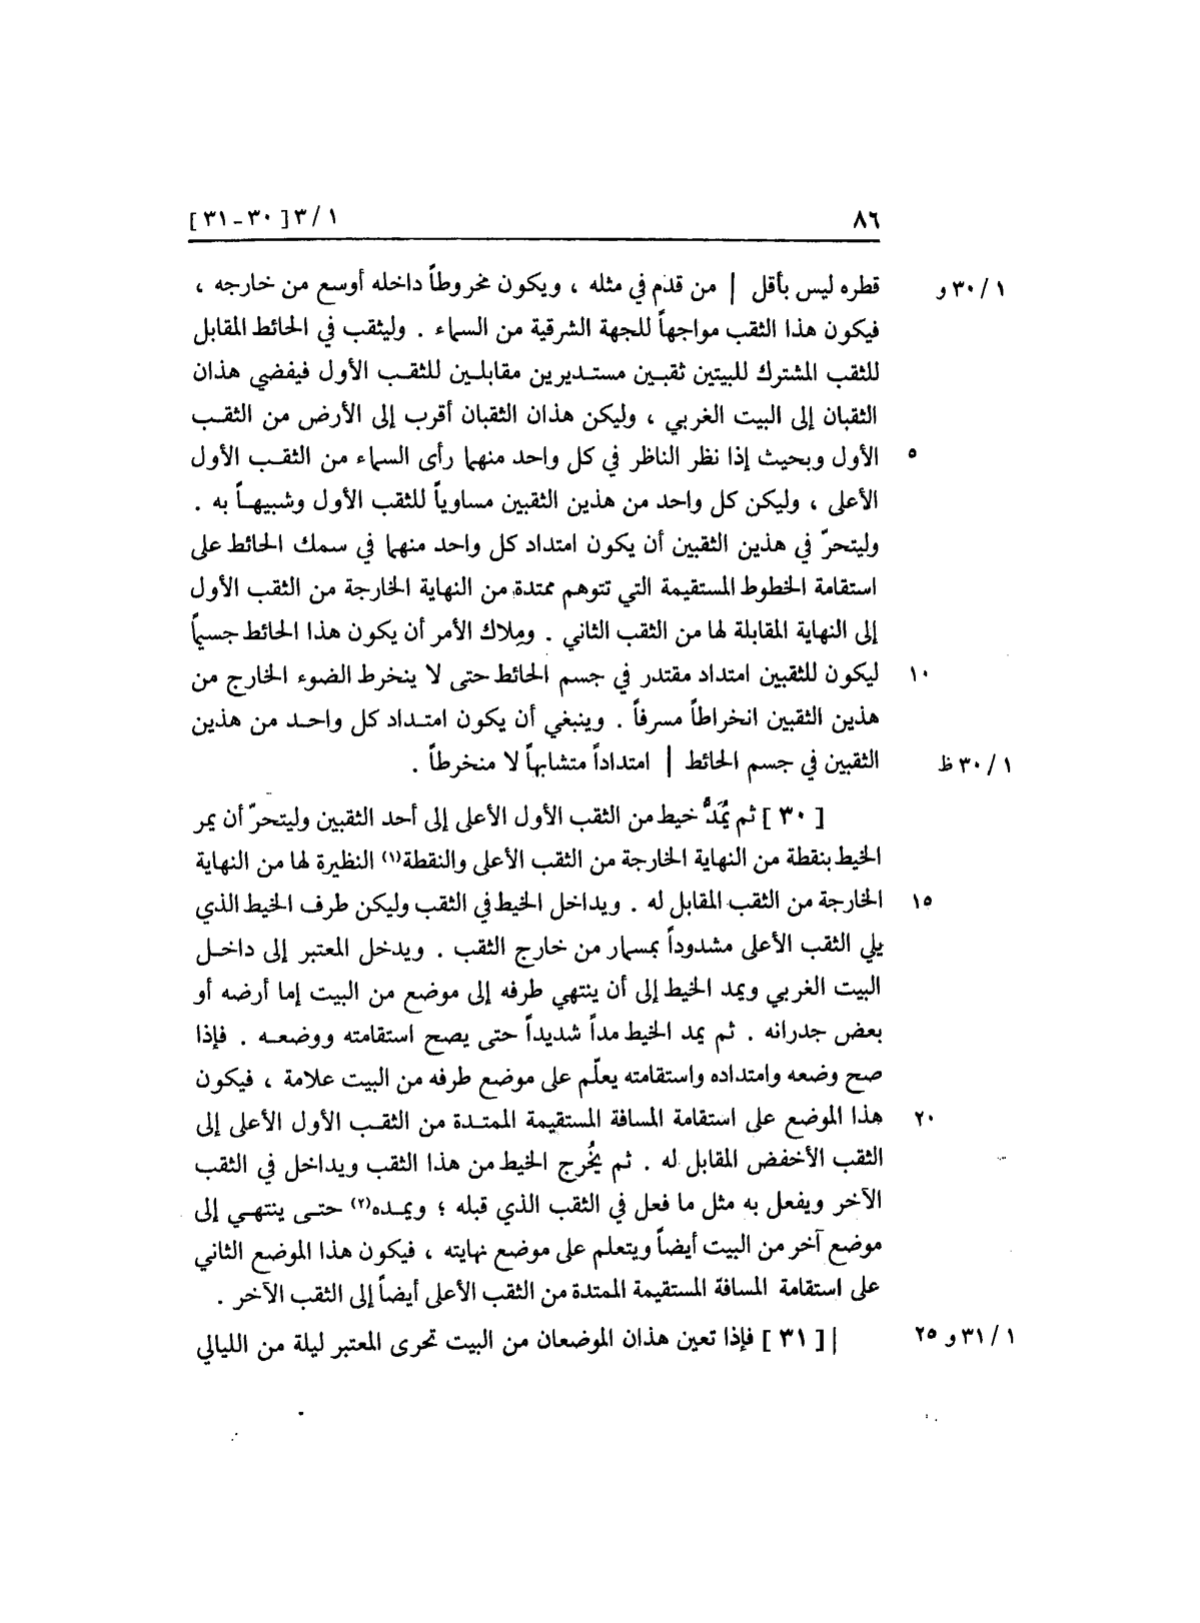 ٨٦ ١/٣[٣٠-٣١]
١/٣٠و قطره ليس بأقل | من قدم في مثله ، ويكون مخروطاً داخله أوسع من خارجه ،
فيكون هذا الثقب مواجهاً للجهة الشرقية من السماء . وليثقب في الحائط المقابل
للثقب المشترك للبيتين ثقبين مستديرين مقابلين للثقب الأول فيفضي هذان
الثقبان إلى البيت الغربي ، وليكن هذان الثقبان أقرب إلى الأرض من الثقب
٥ الأول وبحيث إذا نظر الناظر في كل واحد منهما رأى السماء من الثقب الأول
الأعلى ، وليكن كل واحد من هذين الثقبين مساوياً للثقب الأول وشبيهاً به .
وليتحرّ في هذين الثقبين أن يكون امتداد كل واحد منهما في سمك الحائط على
استقامة الخطوط المستقيمة التي تتوهم ممتدة من النهاية الخارجة من الثقب الأول
إلى النهاية المقابلة لها من الثقب الثاني . ومِلاك الأمر أن يكون هذا الحائط جسيماً
١٠ ليكون للثقبين امتداد مقتدر في جسم الحائط حتى لا ينخرط الضوء الخارج من
هذين الثقبين انخراطاً مسرفاً . وينبغي أن يكون امتداد كل واحد من هذين
١/٣٠ظ الثقبين في جسم الحائط | امتداداً متشابهاً لا منخرطاً .
[ ٣٠ ] ثم يُمَدُّ خيط من الثقب الأول الأعلى إلى أحد الثقبين وليتحرّ أن يمر
الخيط بنقطة من النهاية الخارجة من الثقب الأعلى والنقطة(١) النظيرة لها من النهاية
١٥ الخارجة من الثقب المقابل له . ويداخل الخيط في الثقب وليكن طرف الخيط الذي
يلي الثقب الأعلى مشدوداً بمسمار من خارج الثقب . ويدخل المعتبر إلى داخل
البيت الغربي ويمد الخيط إلى أن ينتهي طرفه إلى موضع من البيت إما أرضه أو
بعض جدرانه . ثم يمد الخيط مداً شديداً حتى يصح استقامته ووضعه . فإذا
صح وضعه وامتداده واستقامته يعلّم على موضع طرفه من البيت علامة ، فيكون
٢٠ هذا الموضع على استقامة المسافة المستقيمة الممتدة من الثقب الأول الأعلى إلى
الثقب الأخفض المقابل له . ثم يُخرج الخيط من هذا الثقب ويداخل في الثقب
الآخر ويفعل به مثل ما فعل في الثقب الذي قبله ؛ ويمده(٢) حتى ينتهي إلى
موضع آخر من البيت أيضاً ويتعلم على موضع نهايته ، فيكون هذا الموضع الثاني
على استقامة المسافة المستقيمة الممتدة من الثقب الأعلى أيضاً إلى الثقب الآخر .
١/٣١و ٢٥ | [ ٣١ ] فإذا تعين هذان الموضعان من البيت تحرى المعتبر ليلة من الليالي